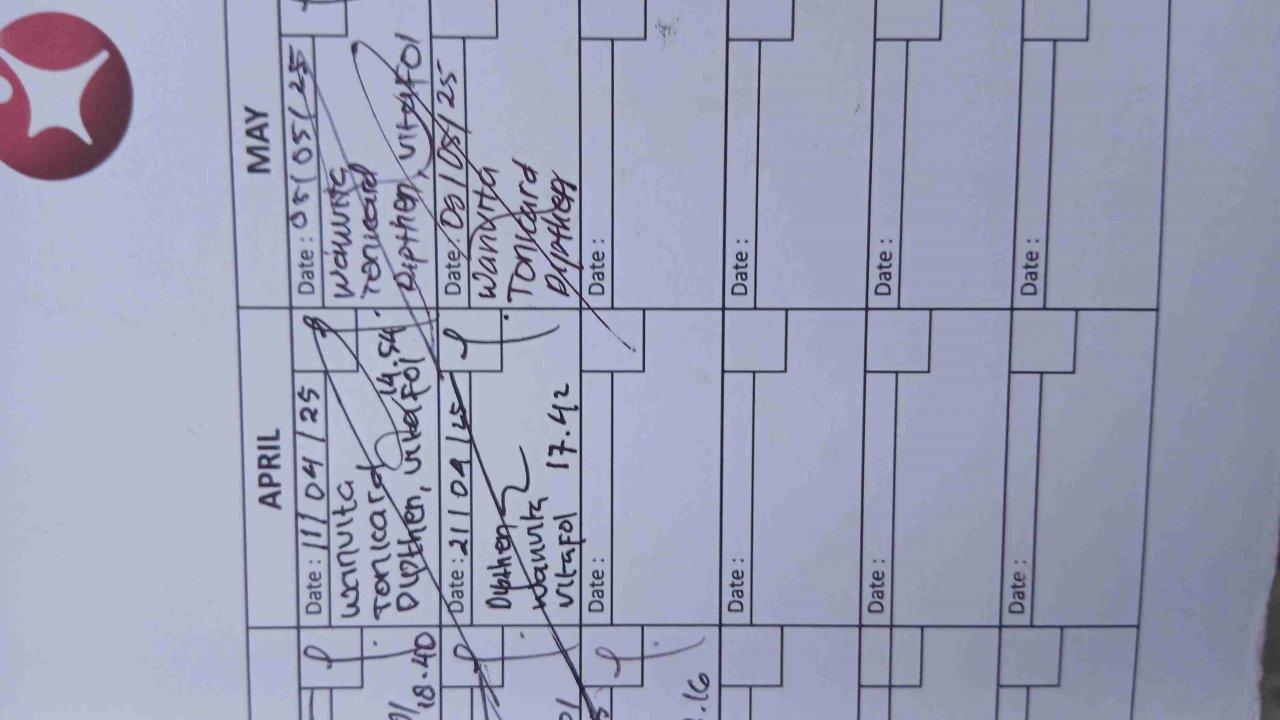 APRIL
MAY
18.40
.16
Date : 11/04/25
Wanvita
Tonicard
14.54
Dipthen, vitafol
Date : 21/04/25
Dipthen
Wanvita
vitafol 17.42
Date :
Date :
Date :
Date :
Date : 05/05/25
Wanvita
Tonicard
Dipthen, vitafol
Date : 05/25
Wanvita
Tonicard
Dipthen
Date :
Date :
Date :
Date :